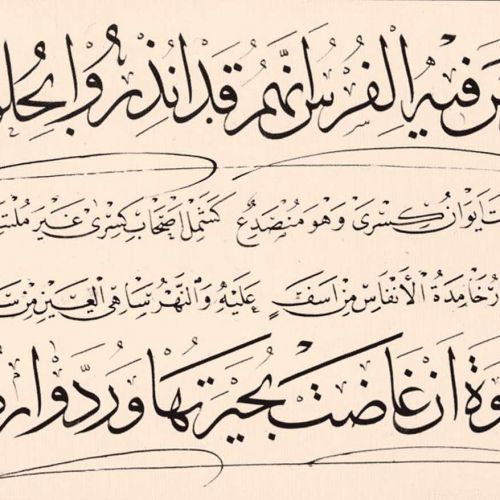 س فيه الفُرْسُ انَّهُمُ قَدْ انْذِرُوا بِحُلو
ت ايوَانُ كِسْرَى وَهْوَ مُنْصَدِعٌ كَشَمْلِ اصْحَابِ كِسْرَى غَيْرَ مُلْتَئِـ
رُ خَامِدَةُ الْأَنْفَاسِ مِنْ اسَفٍ عَلَيْهِ وَالنَّهْرُ سَاهِي الْعَيْنِ مِنْ سَـ
وَةَ انْ غَاضَتْ بُحَيْرَتُهَا وَرُدَّ وَارِدُ